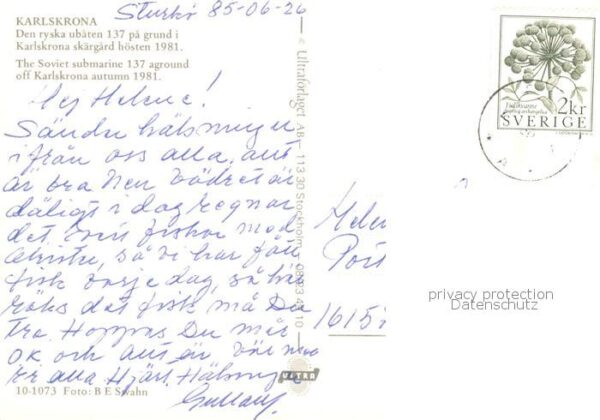 KARLSKRONA
Den ryska ubåten 137 på grund i
Karlskrona skärgård hösten 1981.
The Soviet submarine 137 aground
off Karlskrona autumn 1981.
Sturkö 85-06-26
Hej Helene!
Sänder hälsningar
ifrån oss alla, allt
är bra Men vädret är
dåligt i dag regnar
det. fiskar med
så vi har fått
fisk varje dag, så här
röks det fisk må Du
tro. Hoppas Du mår
OK och allt är bra med
er alla Hjärtl. Hälsningar
10-1073 Foto: B E Swahn
Ultraförlaget AB - 113 30 Stockholm
ULTRA
2kr
SVERIGE
Helen
Post
1615
privacy protection
Datenschutz